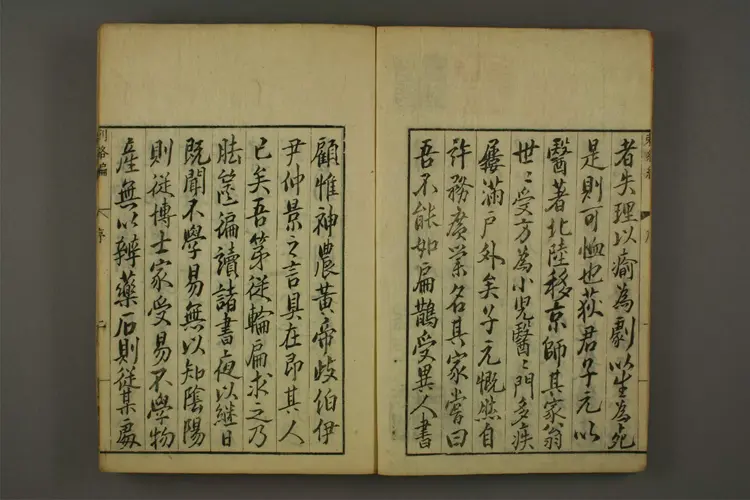 者失理以瘉為劇以生為死
是則可恤也荻君子元以
醫著北陸移京師其家翁
世〻受方為小児醫〻門多疾
屨滿戶外矣子元慨然自
許務廣業名其家嘗曰
吾不能如扁鵲受異人書
顧惟神農黃帝岐伯伊
尹仲景之言具在即其人
已矣吾第從輪扁求之乃
胠篋徧讀諸書夜以継日
既聞不學易無以知陰陽
則從博士家受易不學物
產無以辨藥石則從某處
列路編
序
二